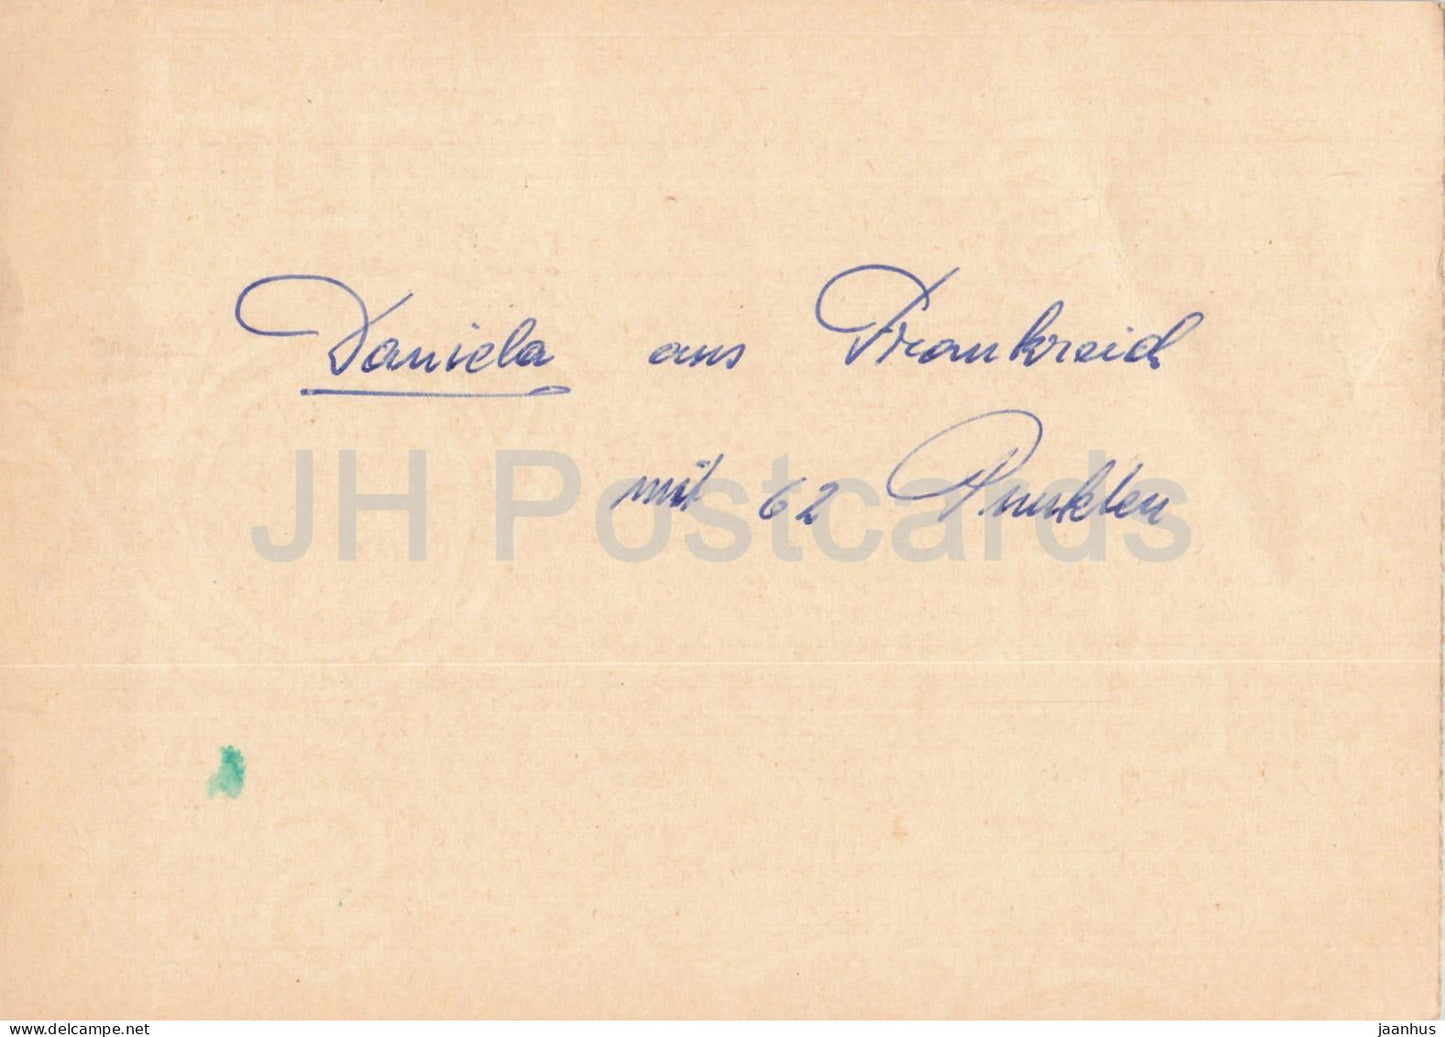 Daniela aus Frankreich
mit 62 Punkten
JH Postcards
www.delcampe.net
jaanhus